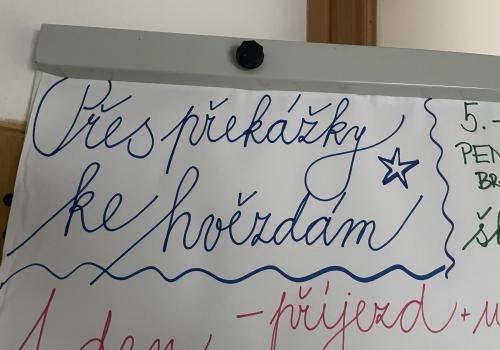 Přes překážky
ke hvězdám
5.-
PEN
BR
šk
1. den
- příjezd +